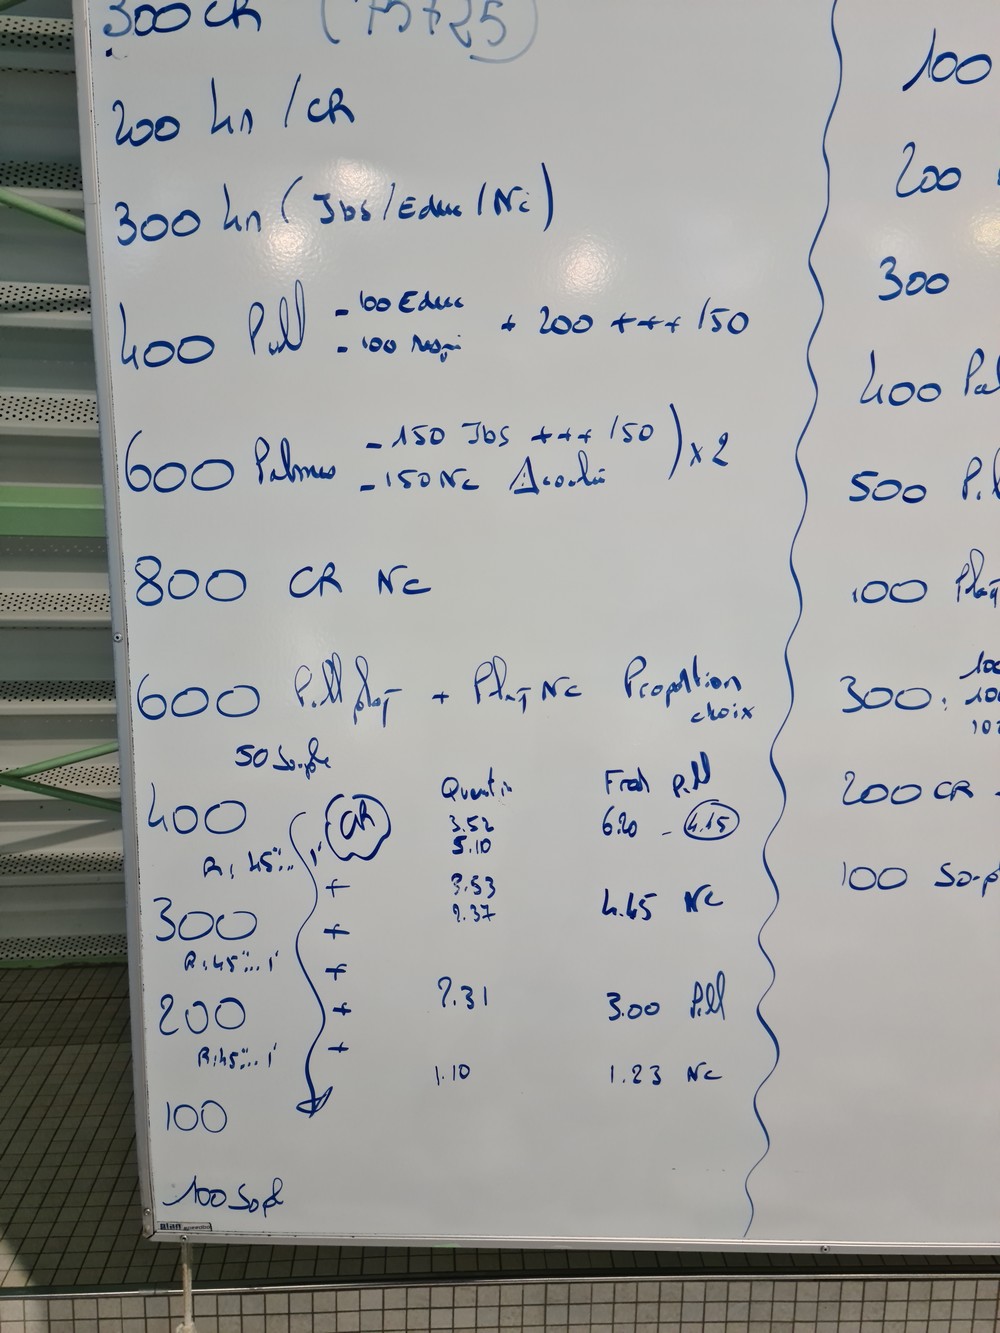 300 CR (75+25)
200 4n / CR
300 4n (Jbs / Educ / Nc)
400 Pull - 100 Educ + 200 +++ /50
- 100 Respi
600 Palmes - 150 Jbs +++ /50 ) x 2
- 150 Nc
800 CR Nc
600 Pull plaq + Plaq Nc Propultion
choix
50 Souple
400 CR
R: 45"... 1'
+
300 +
R: 45"... 1'
+
200 +
R: 45"... 1' +
100
100 Sopl
Quentin
3.52
5.10
3.53
2.37
2.31
1.10
Fred pull
6.20 - 4.15
4.45 Nc
3.00 Pull
1.23 Nc
100
200
300
400 Pal
500 Pull
100 Plaq
300: 100
100
100
200 CR
100 Soupl